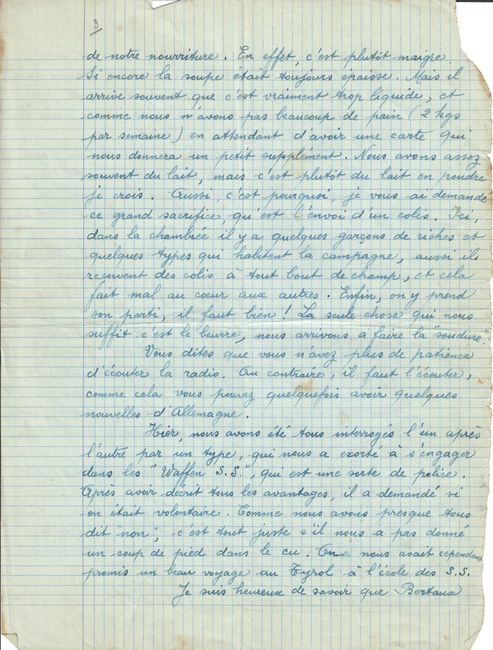 3
de notre nourriture. En effet, c'est plutôt maigre.
Si encore la soupe était toujours épaisse. Mais il
arrive souvent que c'est vraiment trop liquide, et
comme nous n'avons pas beaucoup de pain (2 kgs
par semaine) en attendant d'avoir une carte qui
nous donnera un petit supplément. Nous avons assez
souvent du lait, mais c'est plutôt du lait en poudre
je crois. Aussi, c'est pourquoi, je vous ai demandé
ce grand sacrifice qu'est l'envoi d'un colis. Ici,
dans la chambrée il y a quelques garçons de riches et
quelques types qui habitent la campagne, aussi ils
reçoivent des colis à tout bout de champ, et cela
fait mal au cœur aux autres. Enfin, on y prend
son parti, il faut bien ! La seule chose qui nous
suffit c'est le beurre, nous arrivons à faire la "soudure".
Vous dites que vous n'avez plus de patience
d'écouter la radio. Au contraire, il faut l'écouter,
comme cela vous pouvez quelquefois avoir quelques
nouvelles d'Allemagne.
Hier, nous avons été tous interrogés l'un après
l'autre par un type, qui nous a exorté à s'engager
dans les "Waffen S.S.", qui est une sorte de police.
Après avoir décrit tous les avantages, il a demandé si
on était volontaire. Comme nous avons presque tous
dit "non", c'est tout juste s'il nous a pas donné
un coup de pied dans le cu. On nous avait cependant
promis un beau voyage au Tyrol à l'école des S.S.
Je suis heureux de savoir que Bertaux